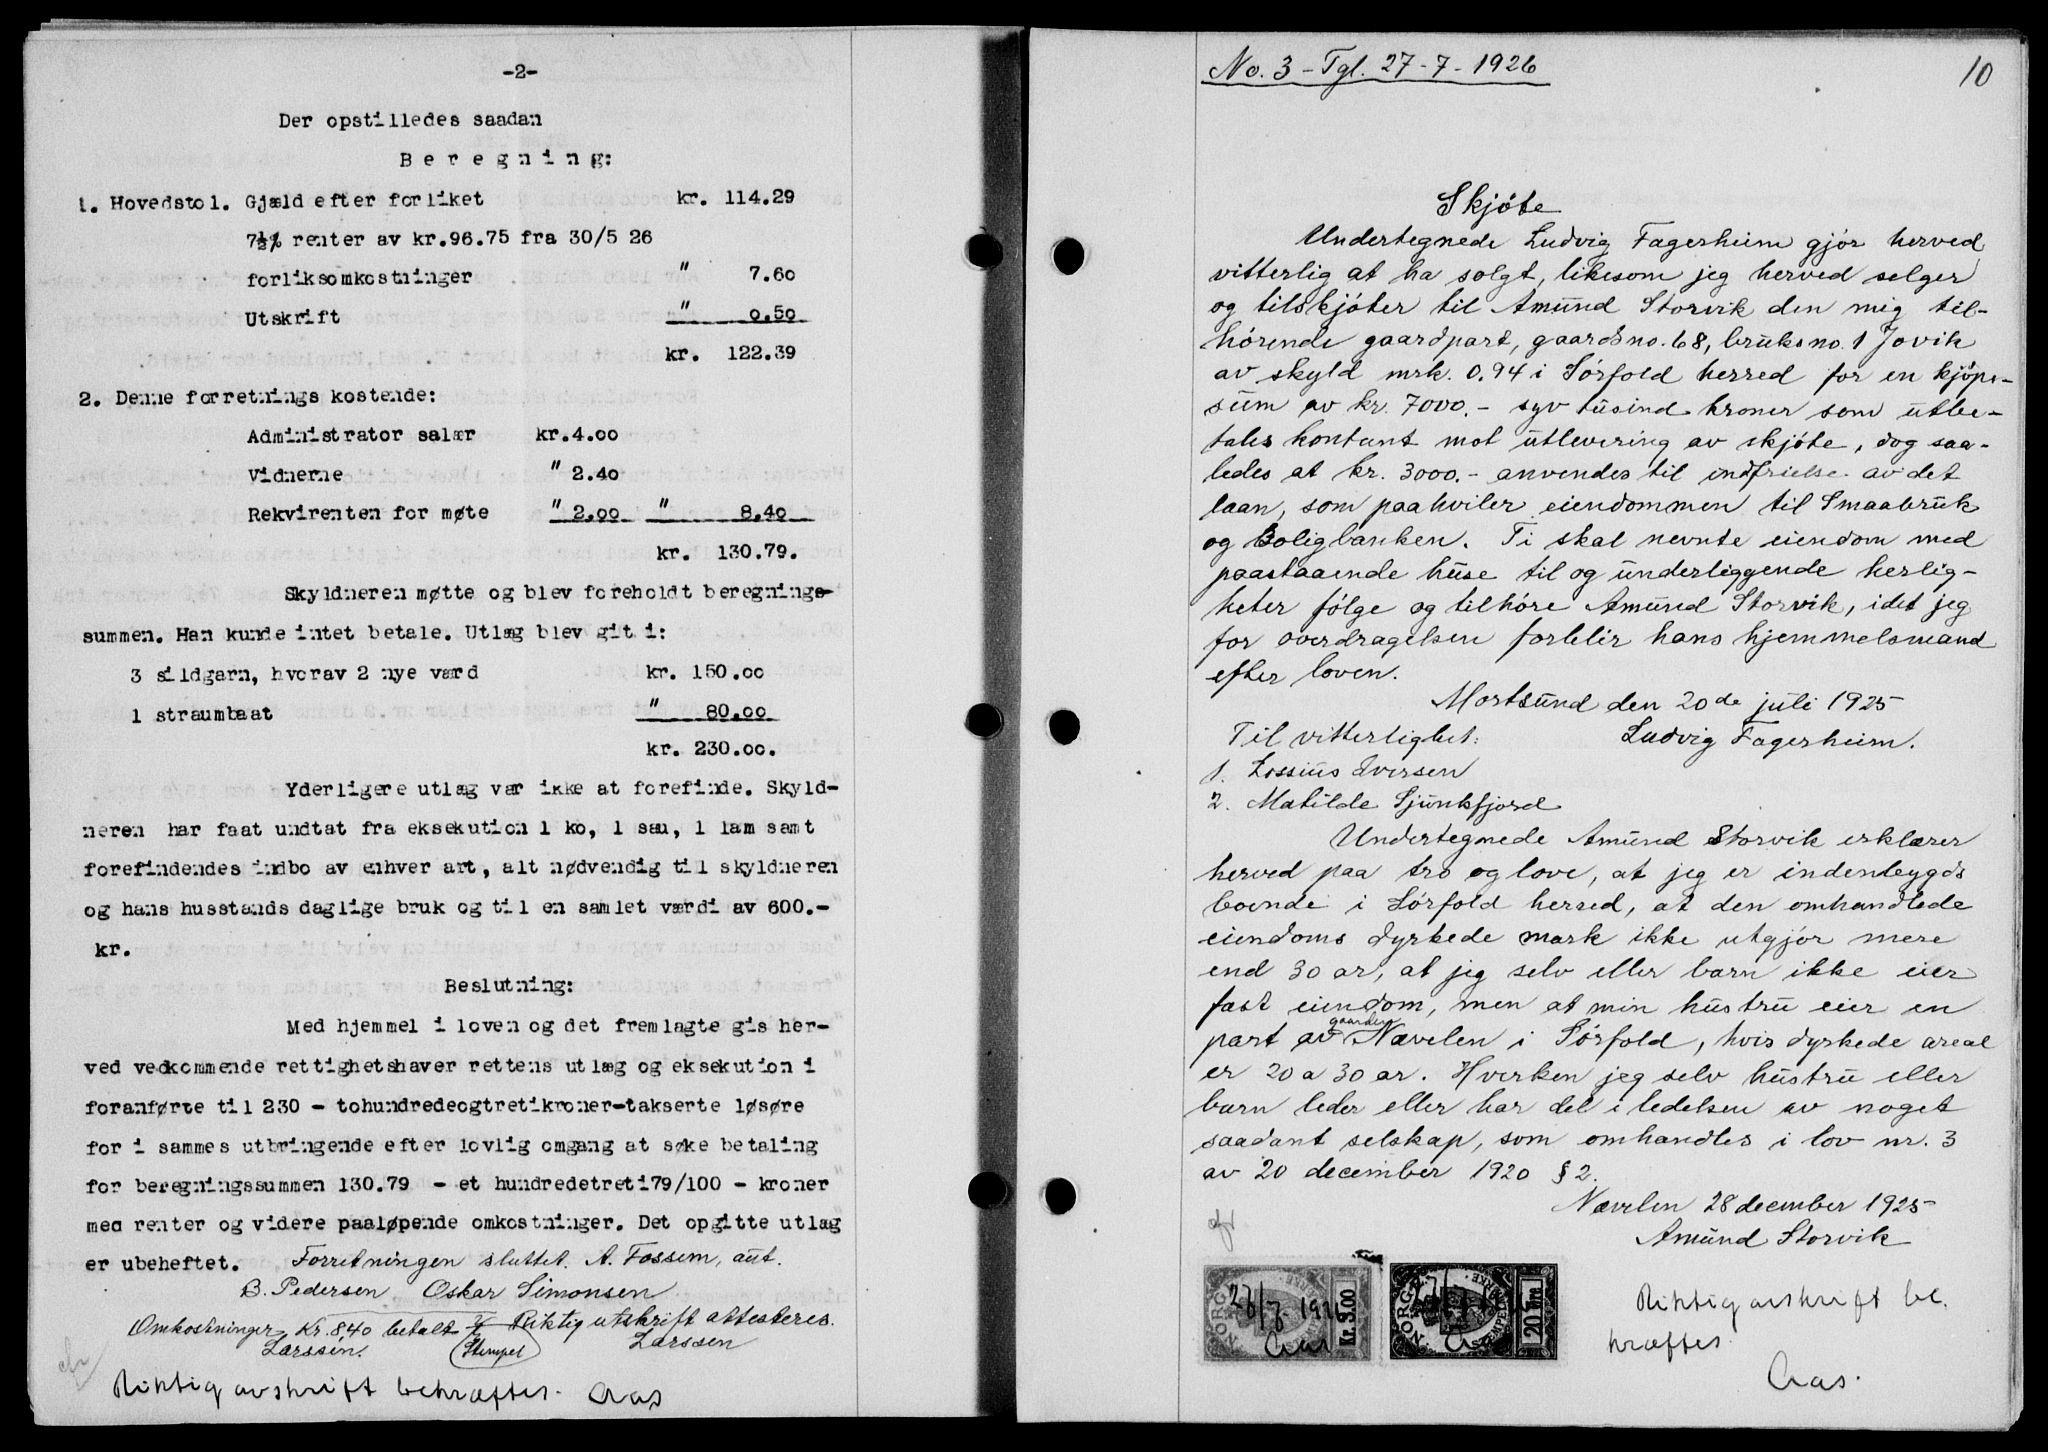 -2-
Der opstilledes saadan
Beregning:
1. Hovedstol. Gjæld efter forliket kr. 114.29
7½% renter av kr.96.75 fra 30/5 26
forliksomkostninger " 7.60
Utskrift " 0.50
kr. 122.39
2. Denne forretnings kostende:
Administrator salær kr.4.00
Vidnerne " 2.40
Rekvirenten for møte " 2.00 " 8.40
kr. 130.79.
Skyldneren møtte og blev foreholdt beregnings-
summen. Han kunde intet betale. Utlæg blev git i:
3 sildgarn, hvorav 2 nye værd kr. 150.00
1 straumbaat " 80.00
kr. 230.00.
Yderligere utlæg var ikke at forefinde. Skyld-
neren har faat undtat fra eksekution 1 ko, 1 sau, 1 lam samt
forefindendes indbo av enhver art, alt nødvendig til skyldneren
og hans husstands daglige bruk og til en samlet værdi av 600.-
kr.
Beslutning:
Med hjemmel i loven og det fremlagte gis her-
ved vedkommende rettighetshaver rettens utlæg og eksekution i
foranførte til 230 - tohundredeogtretikroner-takserte løsøre
for i sammes utbringende efter lovlig omgang at søke betaling
for beregningssummen 130.79 - et hundredetreti79/100 - kroner
med renter og videre paaløpende omkostninger. Det opgitte utlæg
er ubeheftet. Forretningen sluttet. A. Fossem, aut.
B. Pedersen Oskar Simonsen
Omkostninger kr. 8,40 betalt Riktig utskrift attesteres.
Larssen. Stempel Larssen
Riktig avskrift bekræftes. Aas
No. 3 - Tgl. 27-7-1926
10
Skjöte
Undertegnede Ludvig Fagerheim gjör herved
vitterlig at ha solgt, likesom jeg herved selger
og tilskjöter til Amund Storvik den mig til-
hörende gaardpart, gaardsno. 68, bruksno. 1 Jovik
av skyld mrk. 0.94 i Sörfold herred for en kjöpe-
sum av kr. 7000.- syv tusind kroner som utbe-
tales kontant mot utlevering av skjöte, dog saa-
ledes at kr. 3000.- anvendes til indfrielse av det
laan, som paahviler eiendommen til Smaabruk
og Boligbanken. Ti skal nevnte eiendom med
paastaaende huse til og underliggende herlig-
heter fölge og tilhöre Amund Storvik, idet jeg
for overdragelsen forblir hans hjemmelsmand
efter loven.
Mortsund den 20de juli 1925
Til vitterlighet: Ludvig Fagerheim.
1. Lossius Iversen
2. Matilde Sjunkfjord
Undertegnede Amund Storvik erklærer
herved paa tro og love, at jeg er indenbygds
boende i Sörfold herred, at den omhandlede
eiendoms dyrkede mark ikke utgjör mere
end 30 ar, at jeg selv eller barn ikke eier
fast eiendom, men at min hustru eier en
part av gaarden Nævelen i Sörfold, hvis dyrkede areal
er 20 a 30 ar. Hverken jeg selv hustru eller
barn leder eller har del i ledelsen av noget
saadant selskap, som omhandles i lov nr. 3
av 20 december 1920 § 2.
Nævelen 28 december 1925
Amund Storvik
NORGE Kr. 3.00
Aas
NORGE STEMPELMERKE 20 øre
Riktig avskrift be.
kræftes.
Aas.